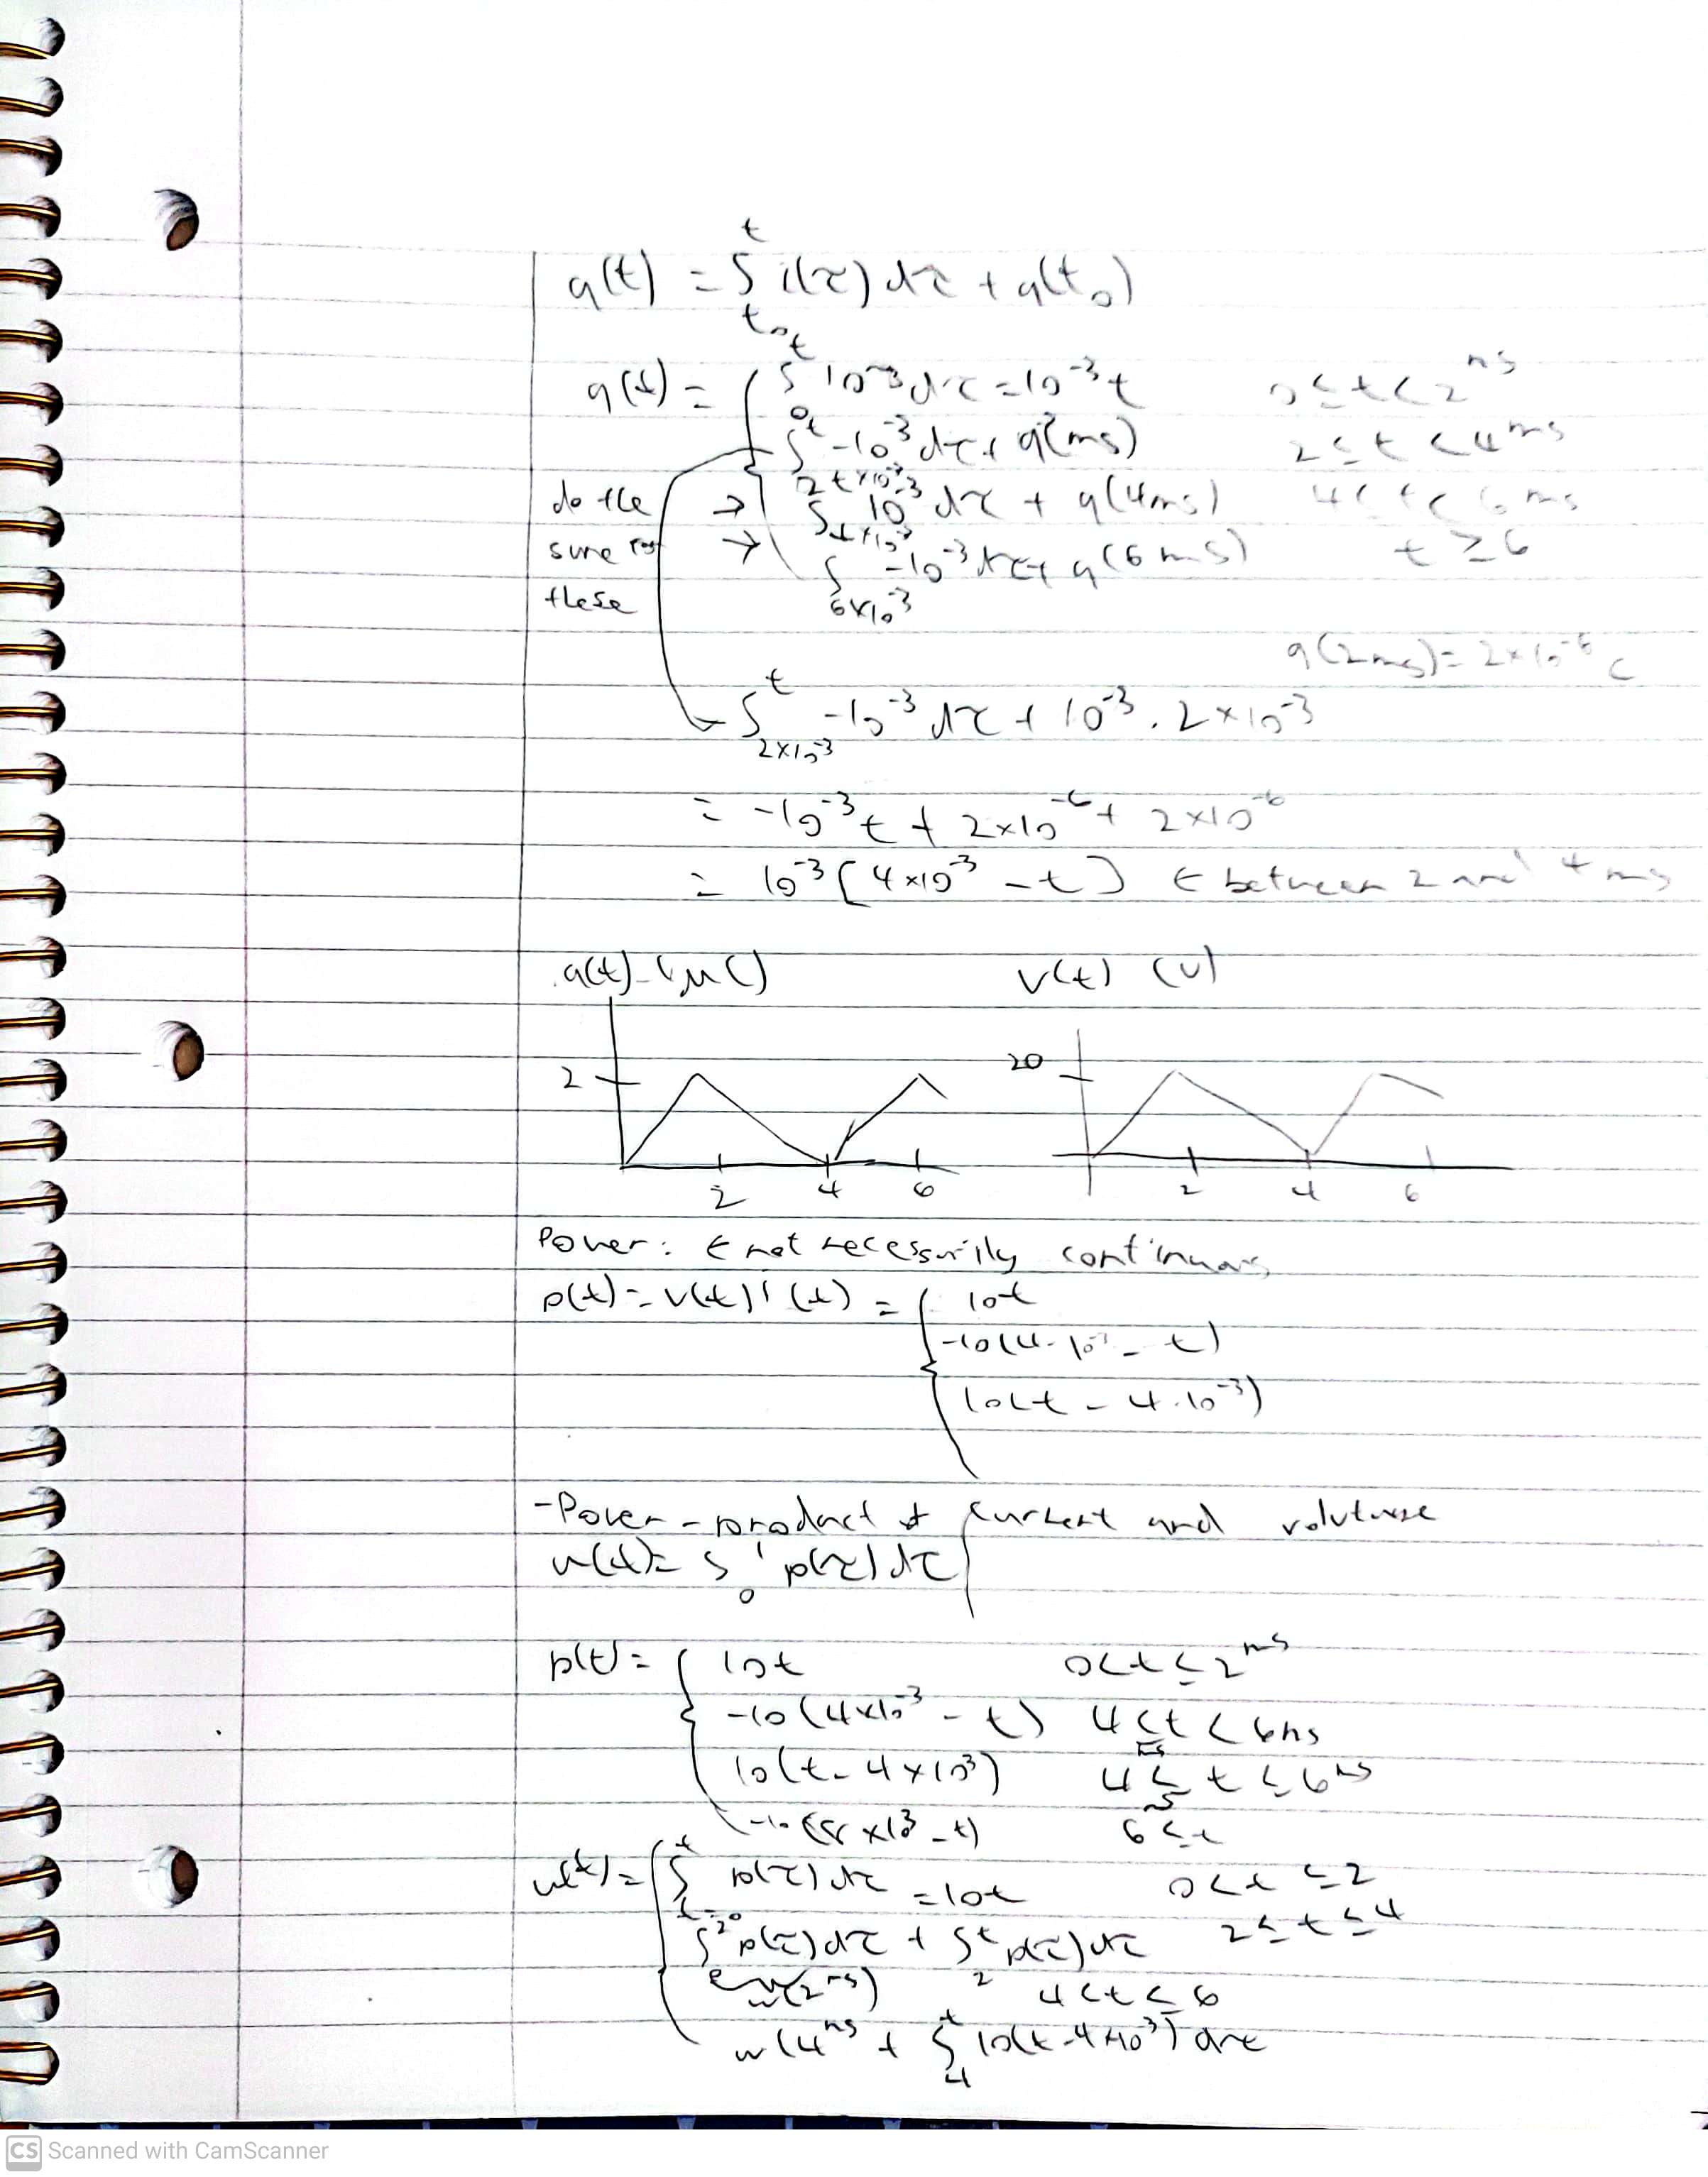 q(t) = ∫ₜ₀ᵗ i(τ) dτ + q(t₀)
q(t) = { ∫₀ᵗ 10⁻³ dτ = 10⁻³ t    0 ≤ t < 2 ms
∫ᵗ -10⁻³ dτ + q(2ms)    2 ≤ t < 4 ms
do the → ∫ 10⁻³ dτ + q(4ms)    4 < t < 6 ms
same for → ∫ -10⁻³ dτ + q(6ms)    t ≥ 6
these 6×10⁻³
q(2ms) = 2×10⁻⁶ C
∫ᵗ -10⁻³ dτ + 10⁻³ . 2×10⁻³
2×10⁻³
= -10⁻³ t + 2×10⁻⁶ + 2×10⁻⁶
= 10⁻³ [4×10⁻³ - t] t between 2 and 4 ms
q(t) (μC)    v(t) (v)
2    20
2 4 6    2 4 6
Power: t not necessarily continuous
p(t) = v(t) i(t) = { 10t
-10(4·10⁻³ - t)
10(t - 4·10⁻³)
- Power - product of current and
w(t) = ∫₀ᵗ p(τ) dτ
p(t) = { 10t    0 < t ≤ 2 ms
-10(4×10⁻³ - t)    4 ≤ t < 6 ms
10(t - 4×10⁻³)    4 ≤ t ≤ 6 ms
-10(8×10⁻³ - t)    6 ≤ t
w(t) = { ∫ᵗ p(τ) dτ = 10t    0 < t ≤ 2
∫² p(τ) dτ + ∫₂ᵗ p(τ) dτ    2 ≤ t ≤ 4
w(2ms)    4 < t ≤ 6
w(4ms + ∫₄ᵗ 10(t - 4×10⁻³) dτ
CS Scanned with CamScanner